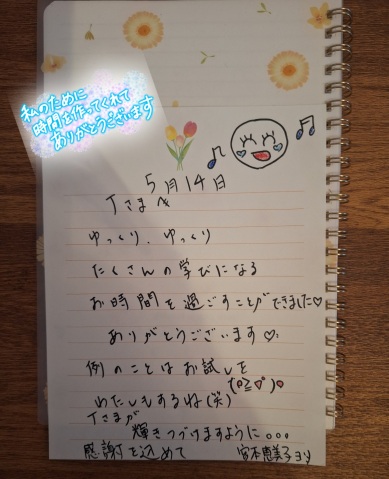 私のために
時間を作ってくれて
ありがとうございます
5月14日
Tさまへ
ゆっくり、ゆっくり
たくさんの学びになる
お時間を過ごすことができました♡
ありがとうございます♡
例のことはお試しを
(o≧▽゜)
わたしもするね(笑)
Tさまが
輝きつづけますように。。。
感謝を込めて 宮本恵美子より